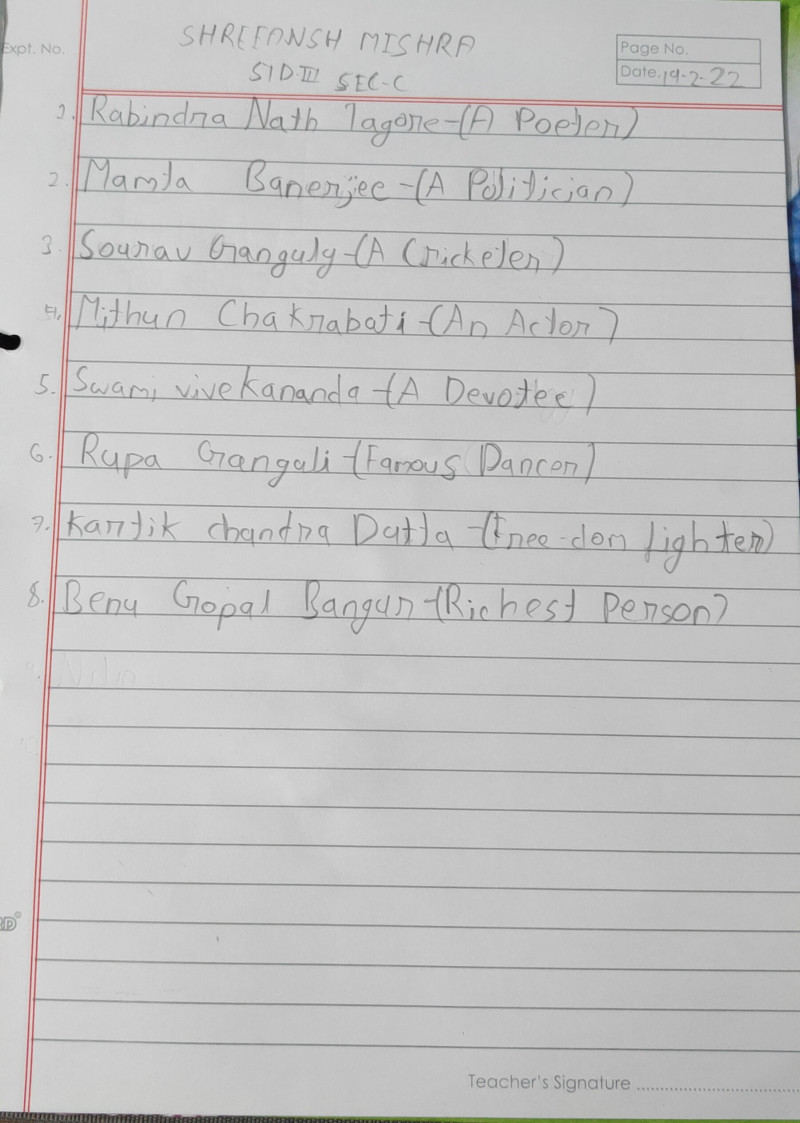 SHREEANSH MISHRA
Expt. No.
Page No.
STD III SEC-C
Date. 19-2-22
1. Rabindra Nath Tagore-(A Poeter)
2. Mamta Banerjee-(A Politician)
3. Sourav Ganguly-(A Cricketer)
4. Mithun Chakrabati-(An Actor)
5. Swami vivekananda-(A Devotee)
6. Rupa Gangali-(Famous Dancer)
7. Kartik chandra Datta-(Free-dom fighter)
8. Benu Gopal Bangur-(Richest Person)
Teacher's Signature